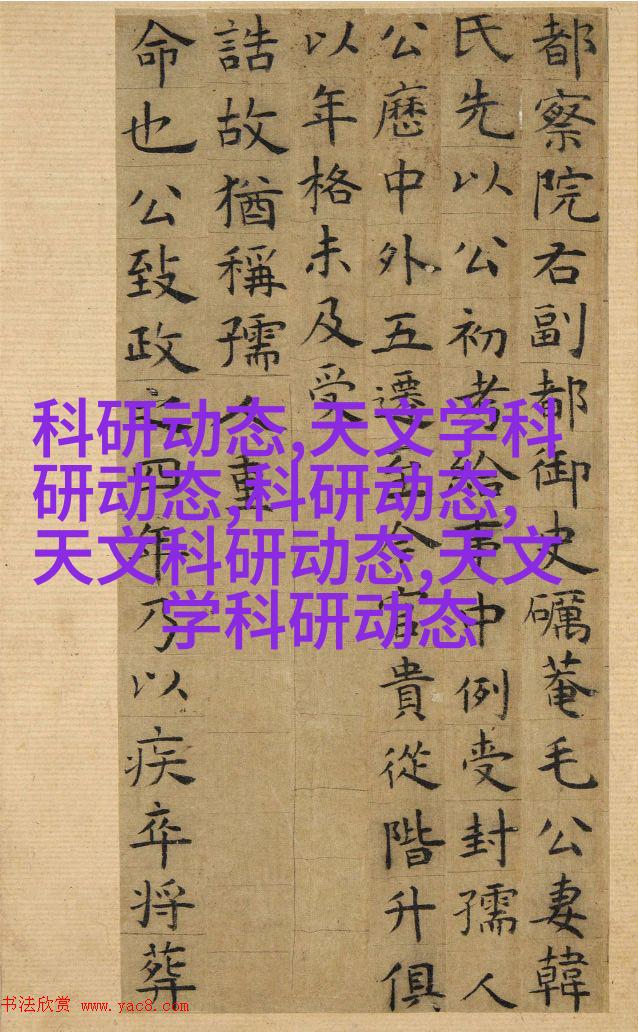 都察院右副都御史礪菴毛公妻韓
氏先以公初考給事中例受封孺人
公歷中外五遷至今官貴從階升俱
以年格未及受
誥故猶稱孺人重
命也公致政之四年乃以疾卒將葬
科研动态,天文学科
研动态,科研动态,
天文科研动态,天文
学科研动态
书法欣赏 www.yac8.com